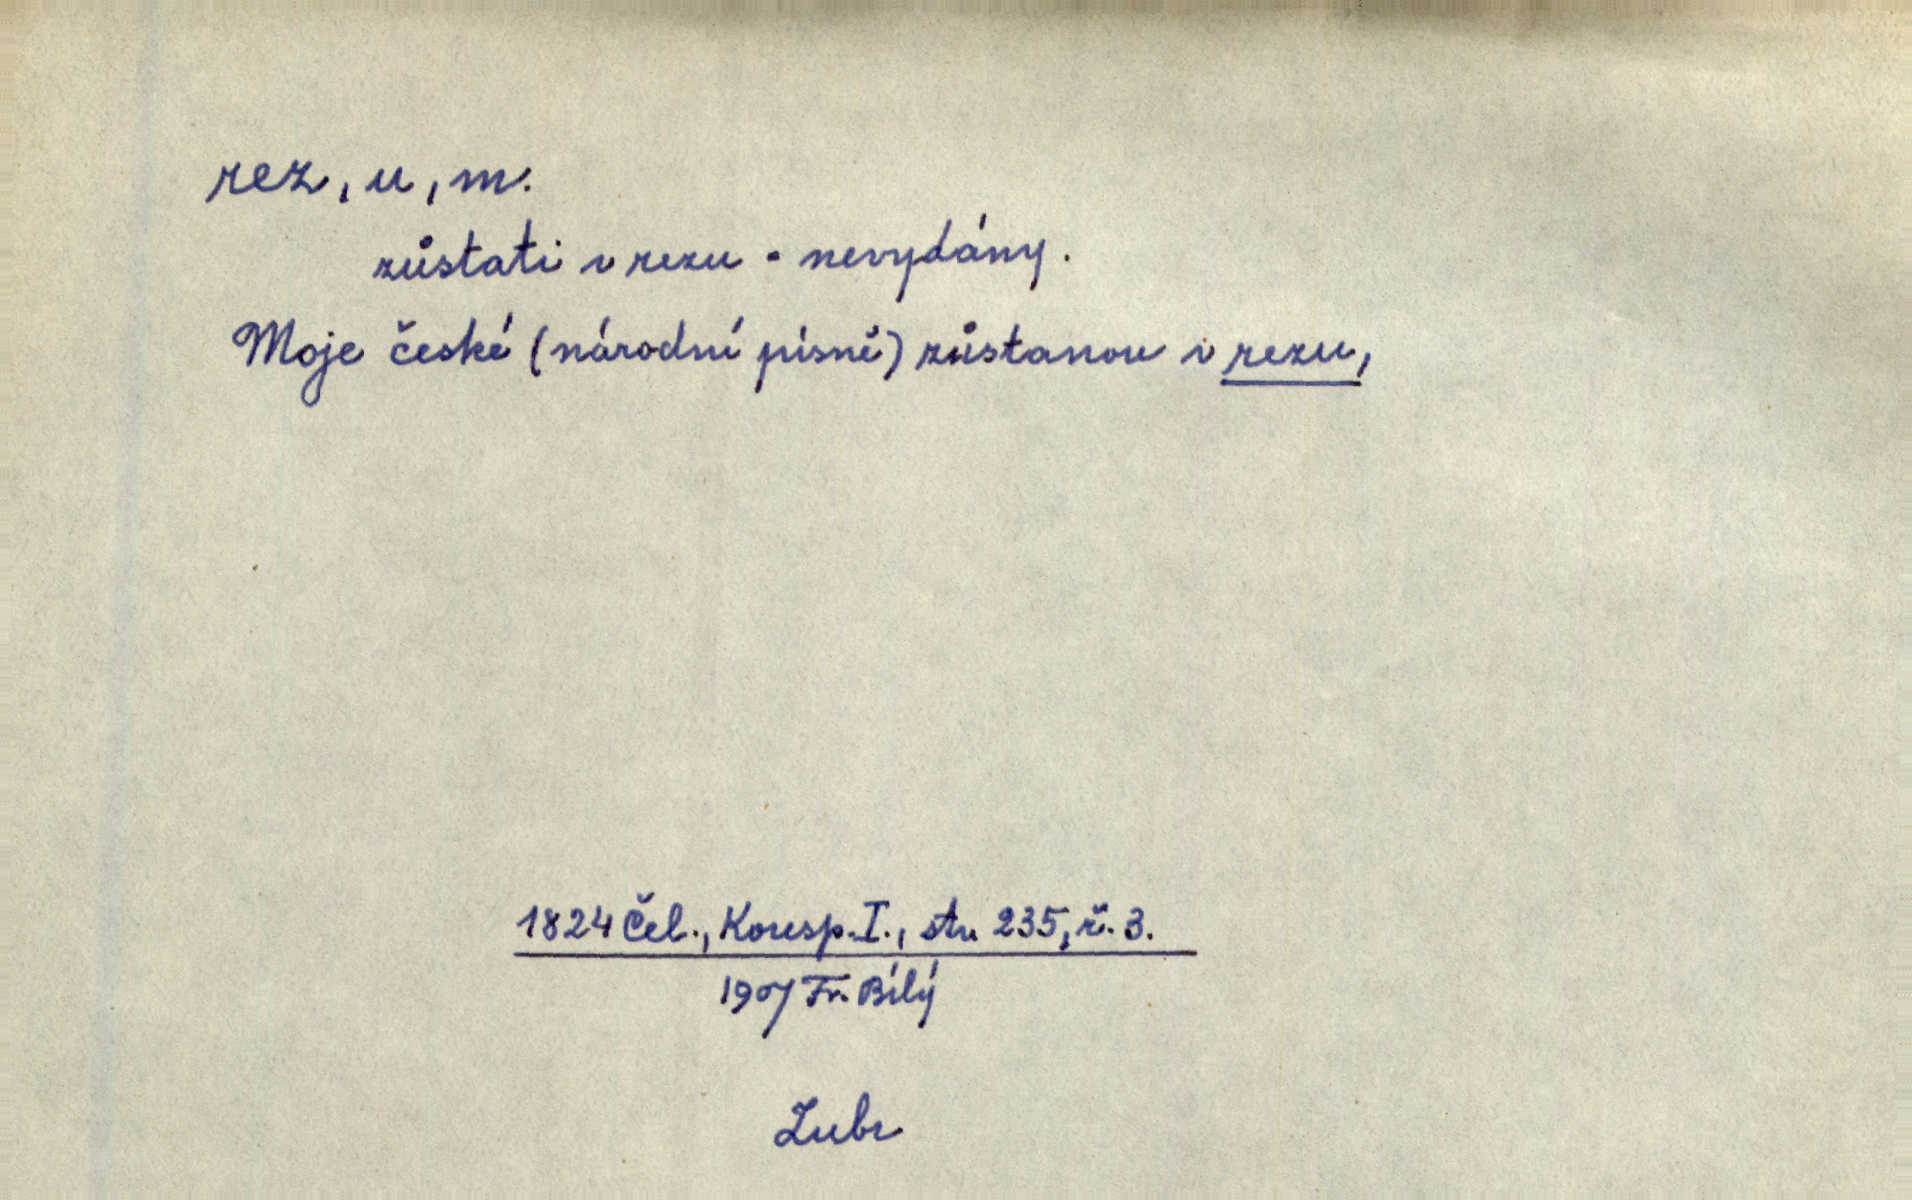 rez, u, m.
zůstati v rezu - nevydány.
Moje české (národní písně) zůstanou v rezu,
1824 Čel., Koresp. I., str. 235, ř. 3.
1907 Fr. Bílý
Zubr